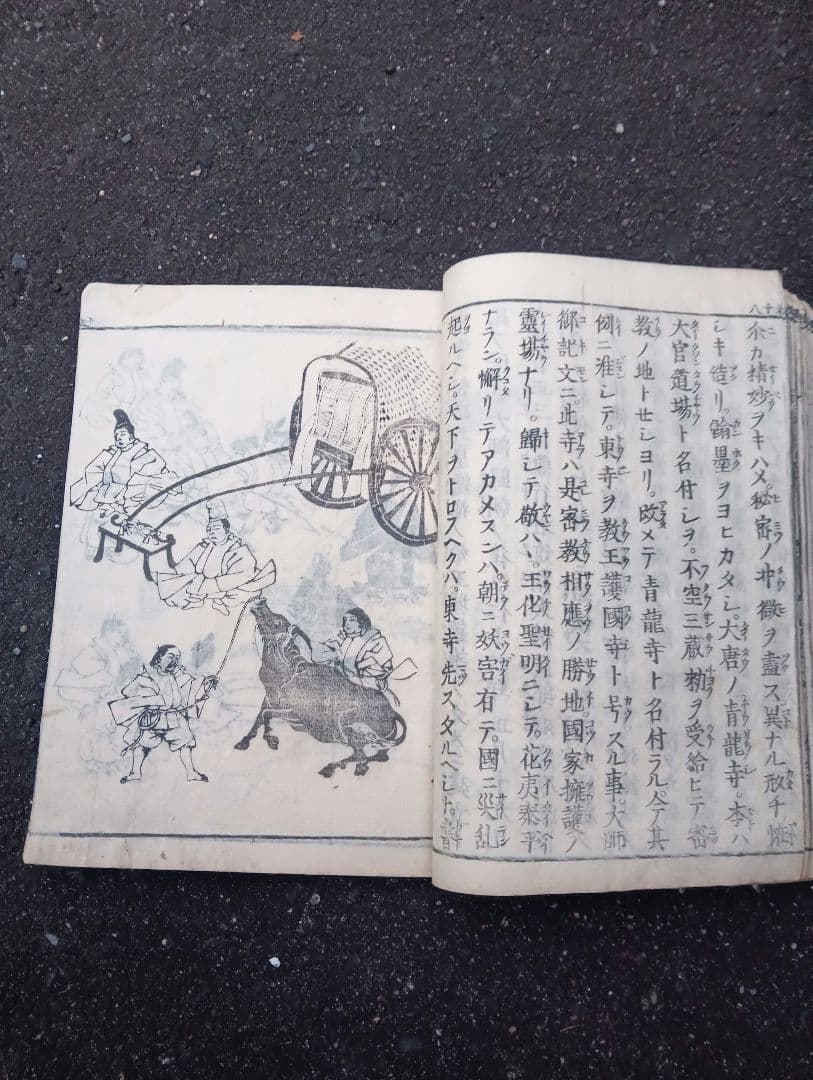 ニ余カ精妙ヲキハメ。秘密ノ冲微ヲ盡ス異ナル故チ
シキ造リ。翰墨ヲヨヒカタシ。大唐ノ青龍寺。本ハ
大官道場ト名付シヲ。不空三蔵勅ヲ受給ヒテ密
教ノ地トセシヨリ。改メテ青龍寺ト名付ラル。今其
例ニ准シテ。東寺ヲ教王護國寺ト号スル事。大師
御記文ニ。此寺ハ是密教相應ノ勝地國家擁護ノ
靈場ナリ。歸シテ敬ハヽ。王化聖明ニシテ。花夷泰平
ナラン。懈リテアカメスンハ。朝ニ妖害有テ。國ニ災乱
起ルヘシ。天下ヲトロスヘクハ。東寺先スタルヘシト。